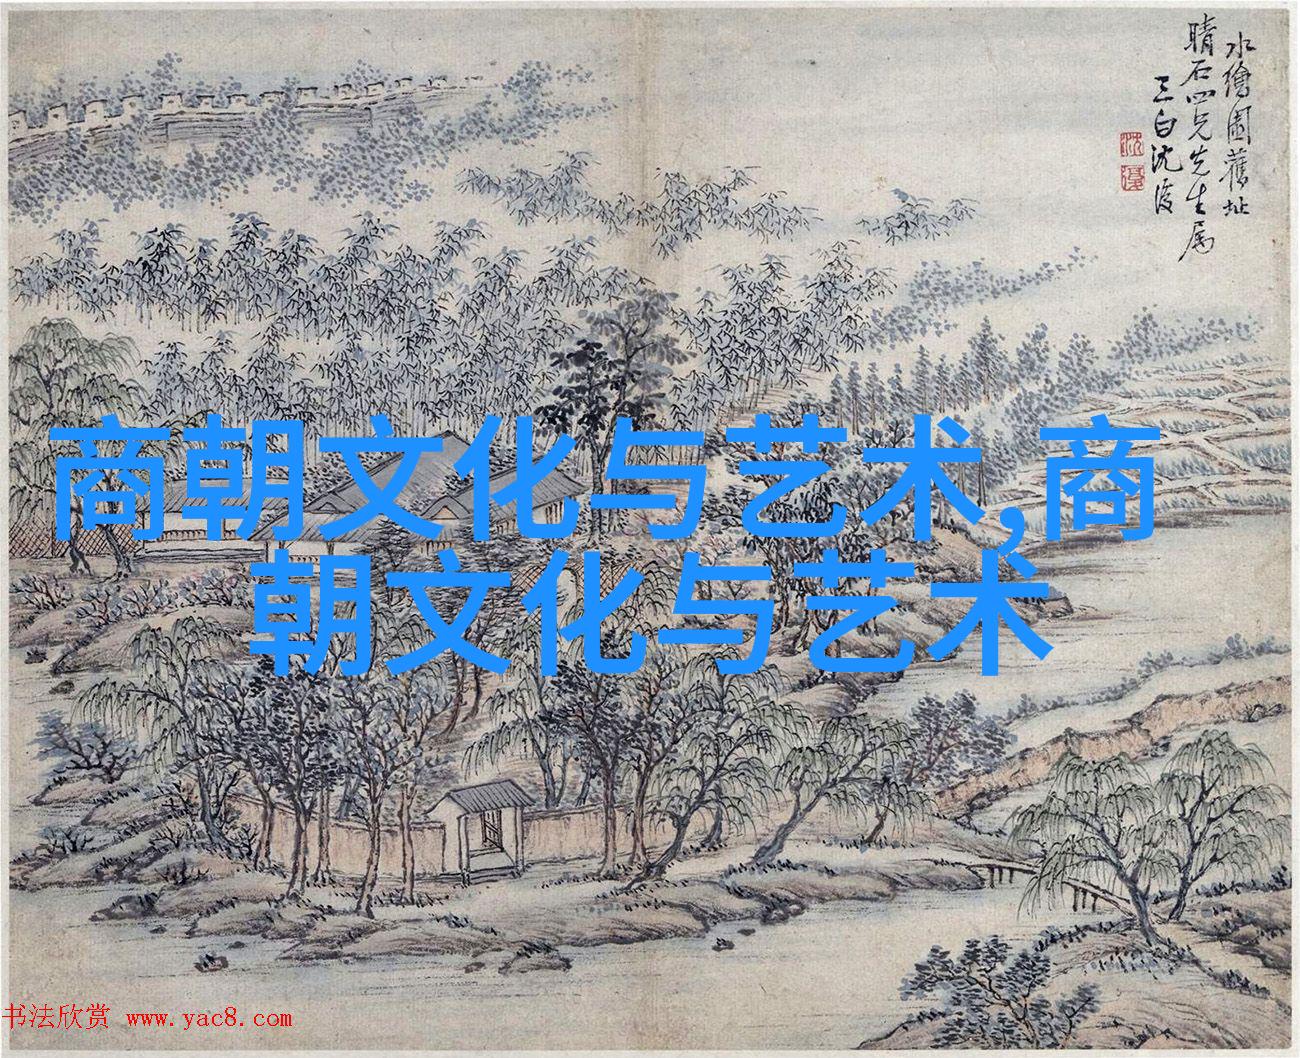 水繪園舊址
晴石四兄先生属
三白沈复
商朝文化与艺术,商
朝文化与艺术
书法欣赏 www.yac8.com